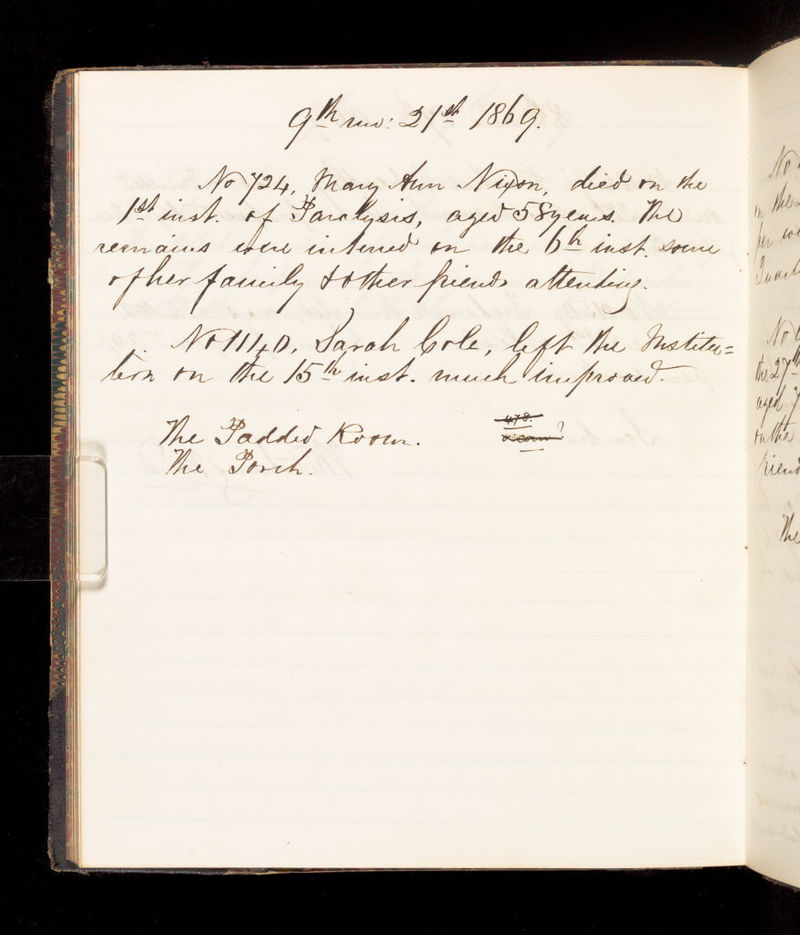 9th mo: 21st 1869.
No 724, Mary Ann Nixon, died on the
1st inst. of Paralysis, aged 58 years. The
remains were interred on the 6th inst. some
of her family & other friends attending.
No 1140, Sarah Cole, left the Institu=
tion on the 15th inst. much improved.
The Padded Room. 478.
The Porch.
No
on the
the 27th
aged
on the
friend
The